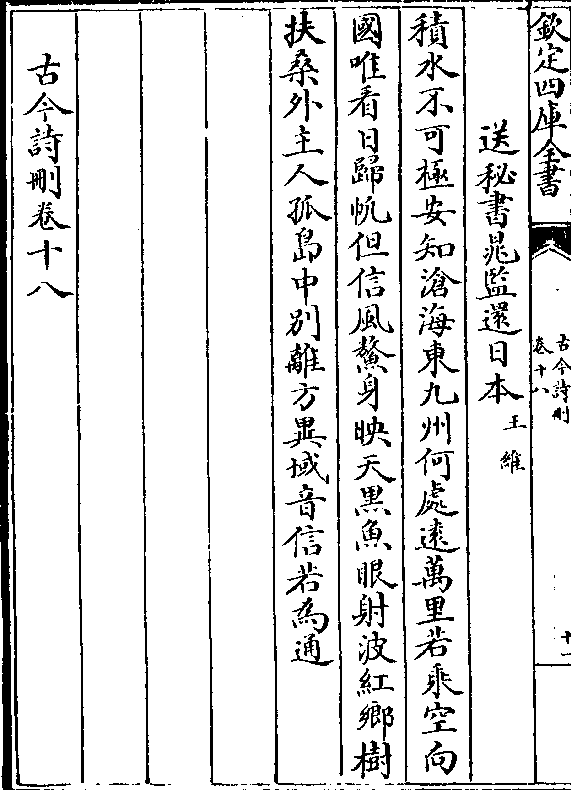 欽定四庫全書
古今詩刪
卷十八
十一
送秘書晁監還日本 王維
積水不可極安知滄海東九州何處遠萬里若乘空向
國唯看日歸帆但信風鰲身映天黑魚眼射波紅鄉樹
扶桑外主人孤島中別離方異域音信若為通
古今詩刪卷十八